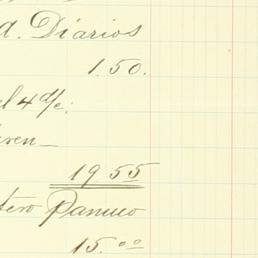 d. Diarios
1.50.
el 4 d/c:
19 55
tero Panuco
15.00